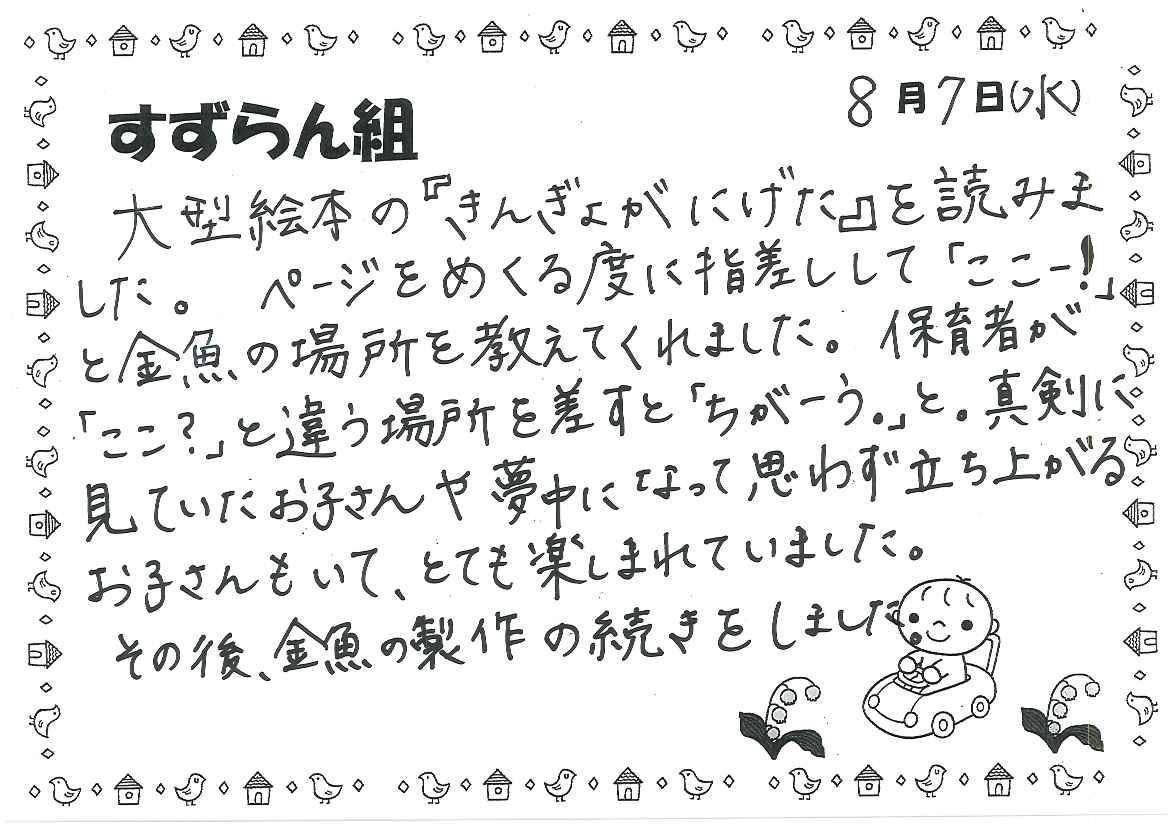 8月7日(水)
すずらん組
大型絵本の『きんぎょがにげた』を読みま
した。 ページをめくる度に指差しして「ここー!」
と金魚の場所を教えてくれました。保育者が
「ここ?」と違う場所を差すと「ちがーう。」と。真剣に
見ていたお子さんや夢中になって思わず立ち上がる
お子さんもいて、とても楽しまれていました。
その後、金魚の製作の続きをしました。